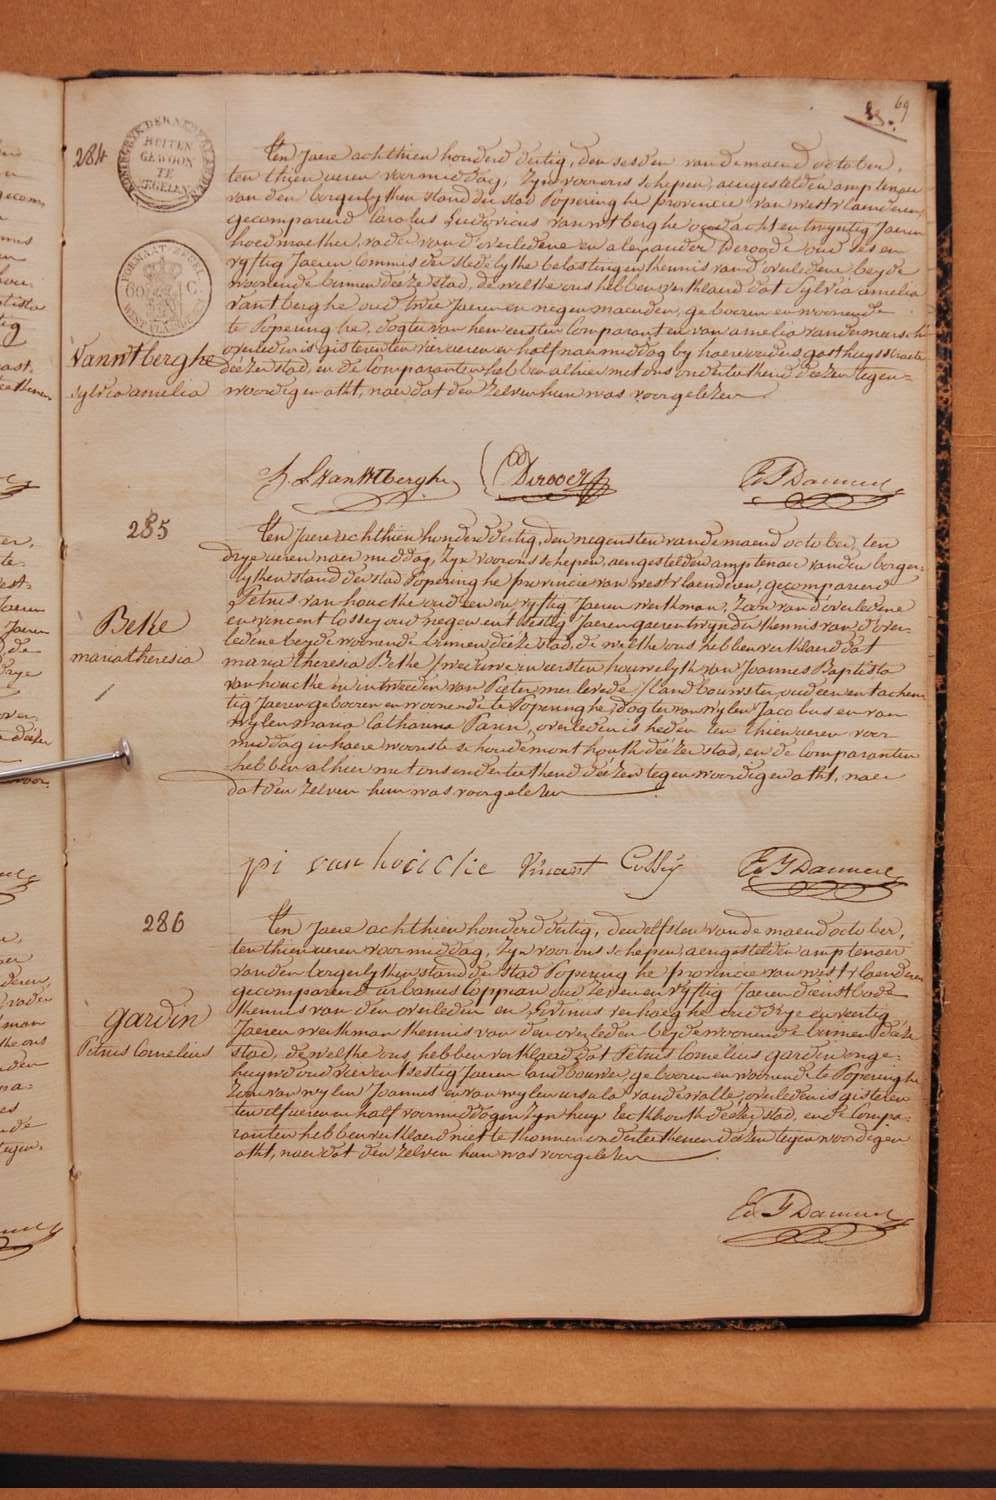 69
33.
284
KONINGRYK DER NEDERLANDEN
BUITEN
GEWOON
TE
ZEGELEN
FORMAAT ZEGEL
60 C.
WEST VLAANDEREN
Ten Jaere achthien honderd dertig, den sesden van de maend october,
ten thien ueren voormiddag, Zyn voor ons schepen, aengestelden amptenaer
van den borgerlyken stand der stad Poperinghe provincie van westvlaenderen,
gecompareerd Carolus Ludovicus vanwtberghe oud acht en twyntig Jaeren
hoedmaeker, vader van d'overledene en alexander Deroode oud ses en
vyftig Jaeren Commis der stedelyke belastingen kennis van d'overledene beyde
woonende binnen deéze stad, de welke ons hebben verklaerd dat Sylvia amelia
Vanwtberghe oud twee Jaeren en negen maenden, geboren en woonende
te Poperinghe, dogter van hem eersten Comparant en van amelia vandermersch
overleden is gisteren ten vier ueren en half naermiddag by haere ouders gasthuysstraete
deézer stad, en de Comparanten hebben alhier met ons onderteekend deézen tegen=
woordigen akt, naer dat den zelven hun was voorgelezen.
Vanwtberghe
sylvia amelia
L Vanwtberghe
Deroode
Ed F Dammel
285
Ten Jaere achthien honderd dertig, den negensten van de maend october, ten
drye ueren naermiddag, Zyn voor ons schepen, aengestelden amptenaer van den borger-
lyken stand der stad Poperinghe provincie van westvlaenderen, gecompareerd
Petrus van houcke oud een en vyftig Jaeren werkman, Zoon van d'overledene
en vincent Cossey oud negen en t'sestig Jaeren gaerentwynder kennis van d'over-
ledene beyde woonende binnen deéze stad, de welke ons hebben verklaerd dat
maria theresia Beke weduwe in eersten houwelyk van Joannes Baptista
van houcke en in tweeden van Pieter merlevede, landbouwster oud een en tachen-
tig Jaeren geboren en woonende te Poperinghe, dogter van wylen Jacobus en van
wylen maria Catharina Pann, overleden is heden ten thien ueren voor
middag in haere woonste schoudemonthouk deézer stad, en de Comparanten
hebben alhier met ons onderteekend deézen tegenwoordigen akt, naer
dat den zelven hun was voorgelezen
Beke
maria theresia
pi van houcke
Vincent Cossey
Ed F Dammel
286
Ten Jaere achthien honderd dertig, den elfsten van de maend october,
ten thien ueren voormiddag, Zyn voor ons schepen, aengestelden amptenaer
van den borgerlyken stand der stad Poperinghe provincie van westvlaenderen
gecompareerd urbanus loppian, oud zeven en vyftig Jaeren dienstbode
kennis van den overleden en Livinus verhaeghe oud drye en veertig
Jaeren werkman kennis van den overleden beyde woonende binnen deéze
stad, de welke ons hebben verklaerd dat Petrus Cornelius gardin onge-
huywd oud vier en t'sestig Jaeren landbouwer, geboren en woonende te Poperinghe
Zoon van wylen Joannes en van wylen ursula vandewalle, overleden is gisteren
ten elf ueren en half voormiddag in zyn huys Eeckhouk deézer stad, en de Compa-
ranten hebben verklaerd niet te konnen onderteekenen deézen tegenwoordigen
akt, naer dat den zelven hun was voorgelezen
gardin
Petrus Cornelius
Ed F Dammel